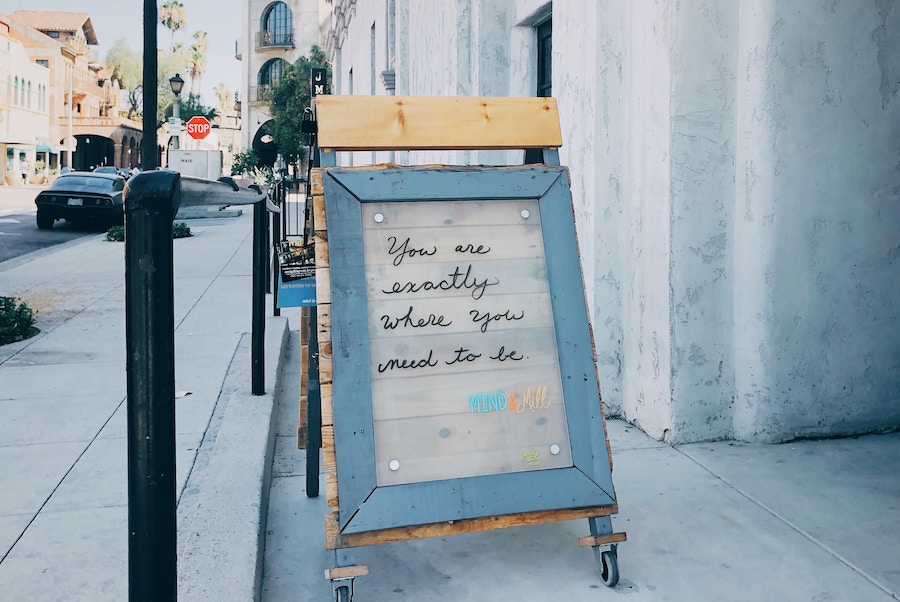 STOP
J
M
You are
exactly
where you
need to be.
MIND & Mill